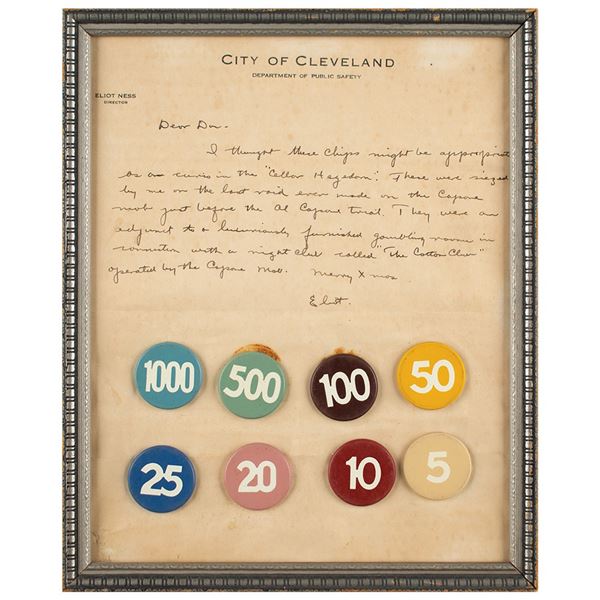 CITY OF CLEVELAND
DEPARTMENT OF PUBLIC SAFETY
ELIOT NESS
DIRECTOR
Dear Dan-
I thought these chips might be appropriate
as a curio in the "Cellar Hagedorn". These were seized
by me on the last raid ever made on the Capone
mob just before the Al Capone trial. They were an
adjunct to a luxuriously furnished gambling room in
connection with a night club called "The Cotton Club"
operated by the Capone Mob. Merry Xmas
Eliot.
1000 500 100 50
25 20 10 5